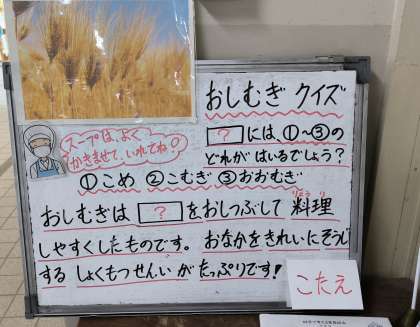 おしむぎ クイズ
スープは、よく
かきまぜて、いれてね!
?には、①~③の
どれがはいるでしょう?
①こめ ②こむぎ ③おおむぎ
おしむぎは ? をおしつぶして 料理
りょうり
しやすくしたものです。おなかをきれいにそうじ
する しょくもつせんいが たっぷりです!
こたえ